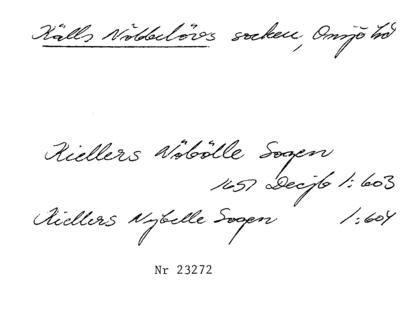 Källs Nöbbelövs socken, Onsjö hd
Kiellers Nöbölle Sogen
1651 Decjb 1:603
Kiellers Nybelle Sogen 1:604
Nr 23272